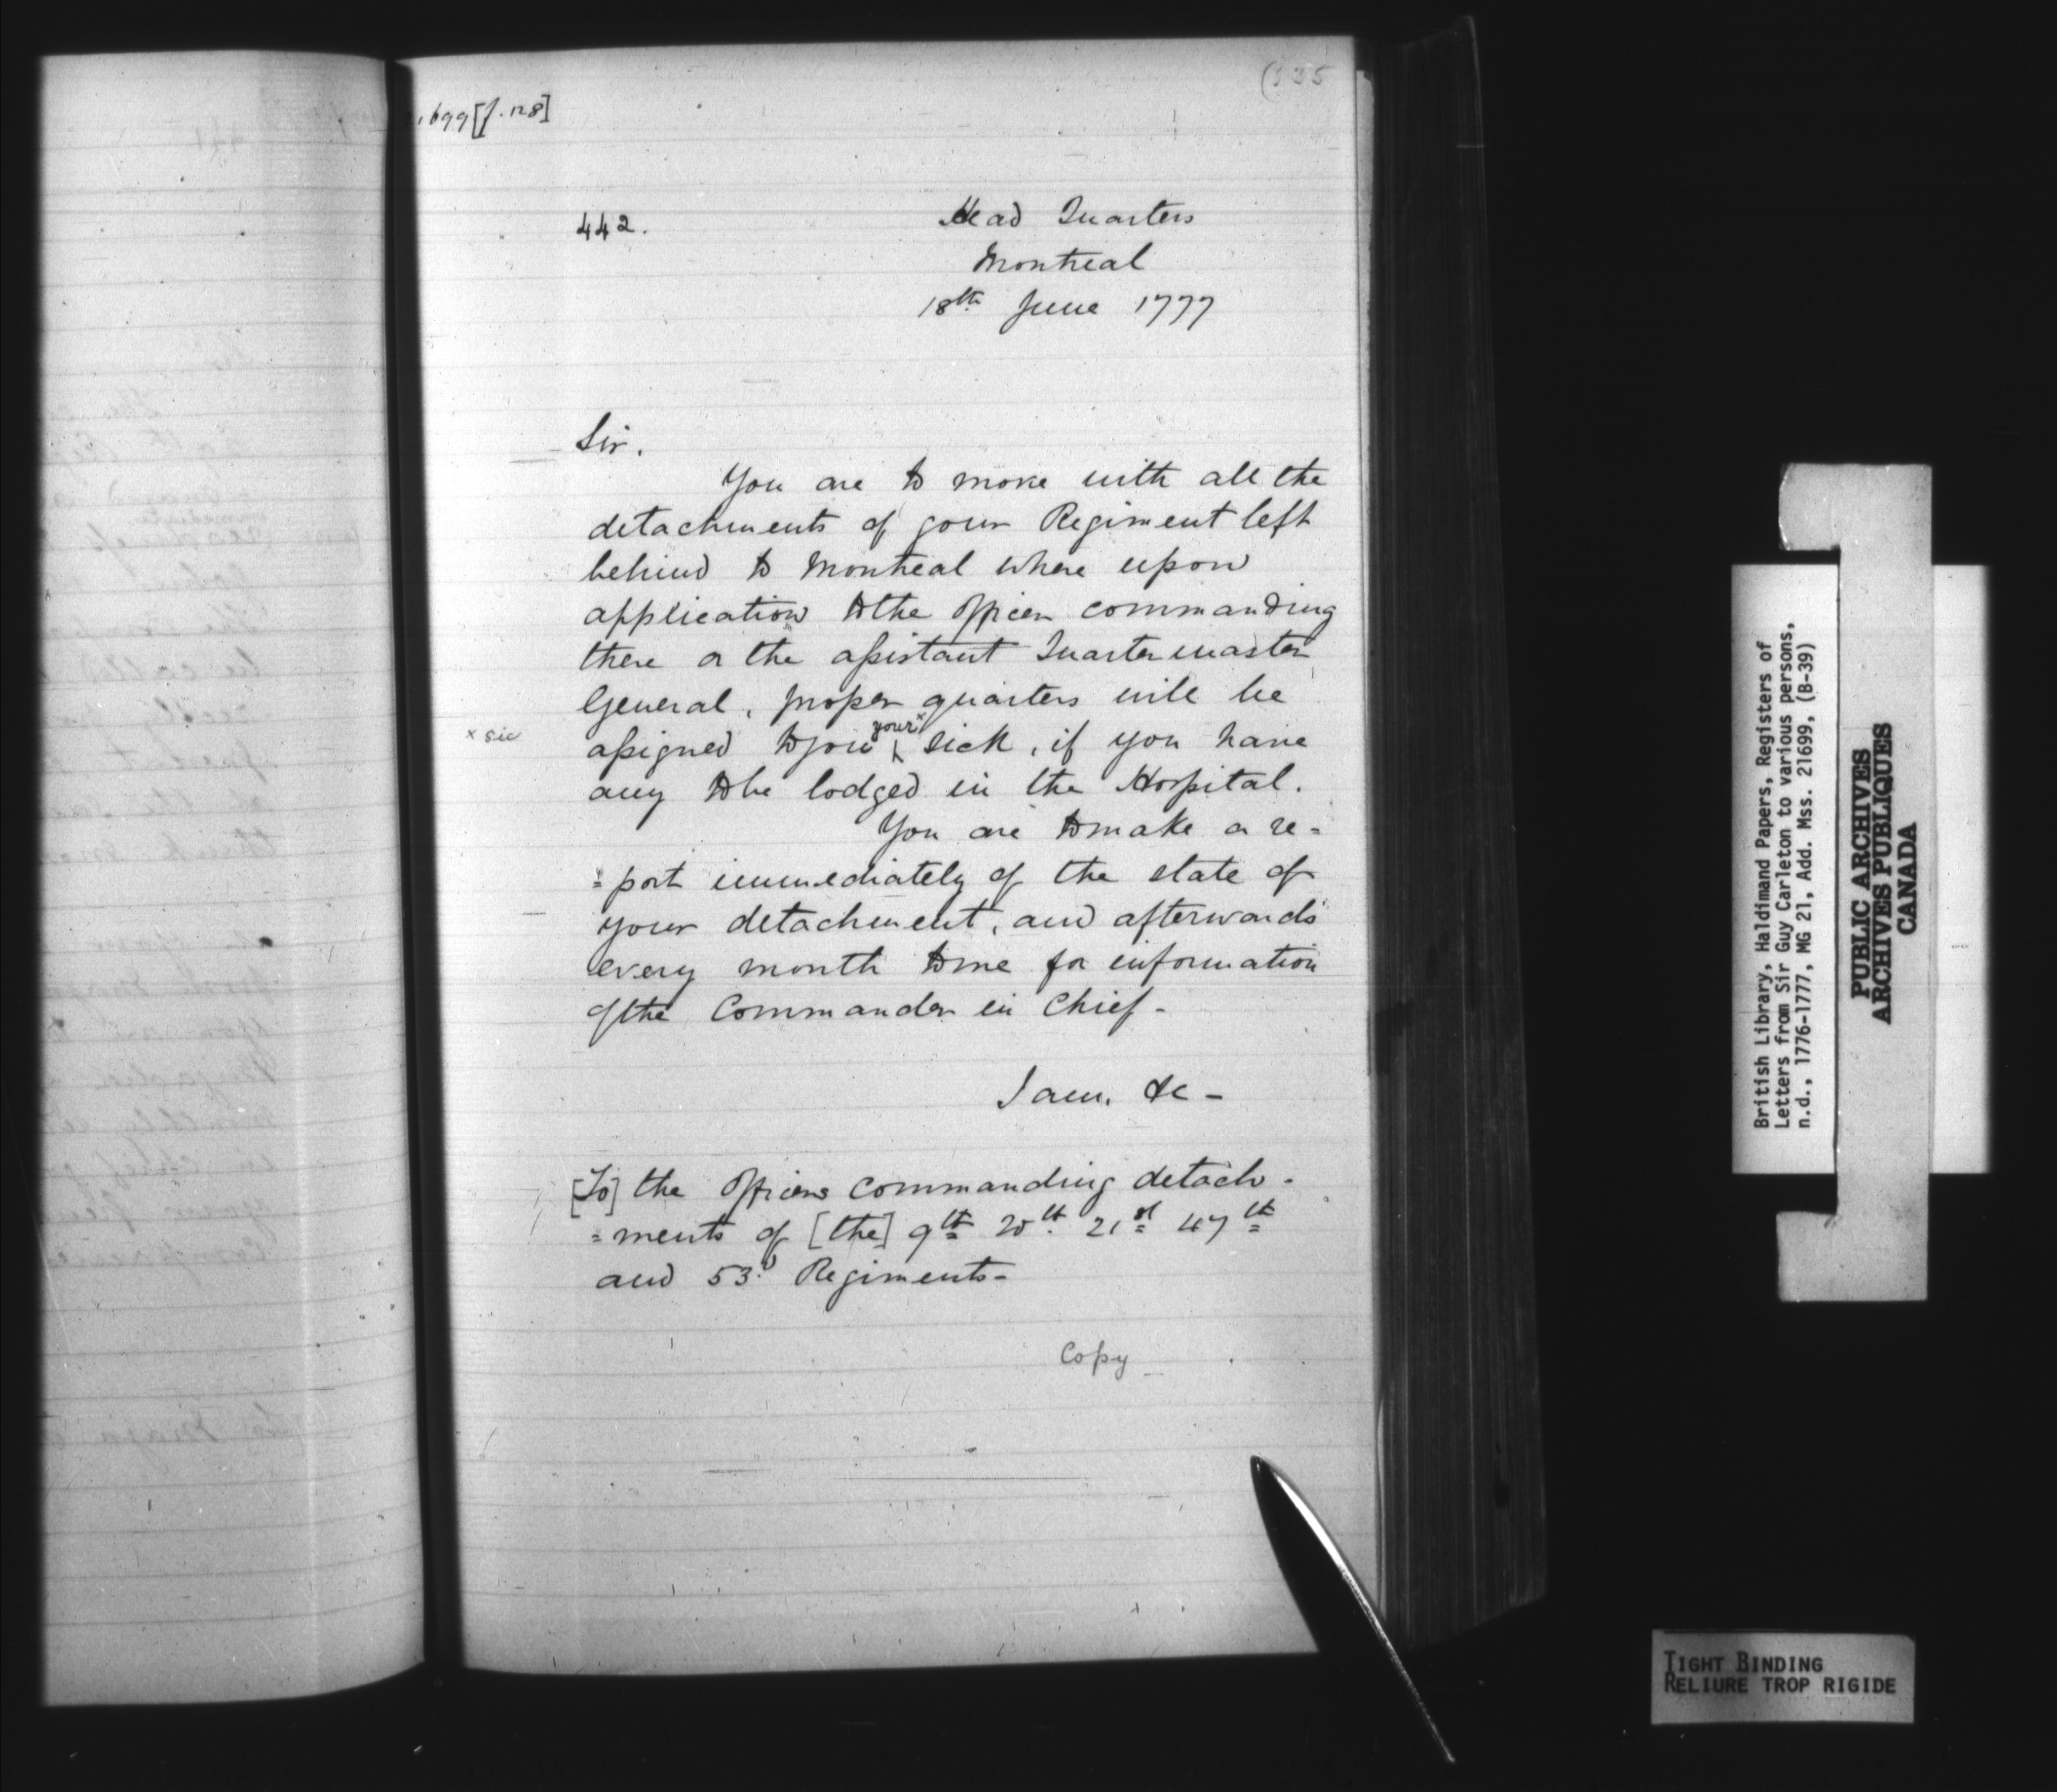 1699 [f. 128]
442.
Head Quarters
Montreal
18th June 1777
Sir.
You are to move with all the
detachments of your Regiment left
behind to Montreal where upon
application to the Officer commanding
there or the assistant Quartermaster
General, proper quarters will be
x sic
assigned to you your x sick, if you have
any to be lodged in the Hospital.
You are to make a re=
=port immediately of the state of
your detachment, and afterwards
every month to me for information
of the Commander in Chief -
I am. &c -
[To] the Officers commanding detach-
=ments of [the] 9th 20th 21st 47th
and 53.d Regiments-
Copy
British Library, Haldimand Papers, Registers of
Letters from Sir Guy Carleton to various persons,
n.d., 1776-1777, MG 21, Add. Mss. 21699, (B-39)
PUBLIC ARCHIVES
ARCHIVES PUBLIQUES
CANADA
TIGHT BINDING
RELIURE TROP RIGIDE